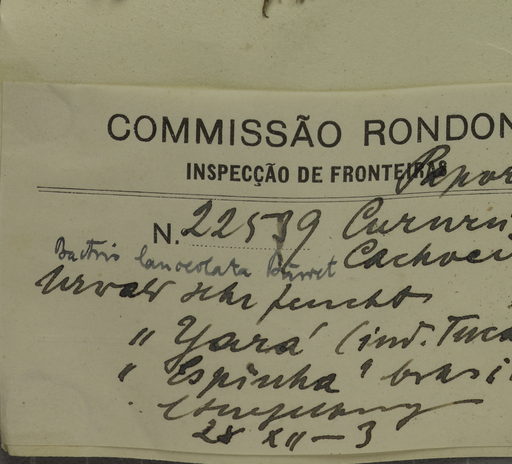 COMMISSÃO RONDON
INSPECÇÃO DE FRONTEIRAS
N. 22539 Cururú
Bactris lanceolata Burret Cachoei
Urwald sehr feucht
" Yará" (ind. Tuca
" Espinha" brasi
28 XII - 3